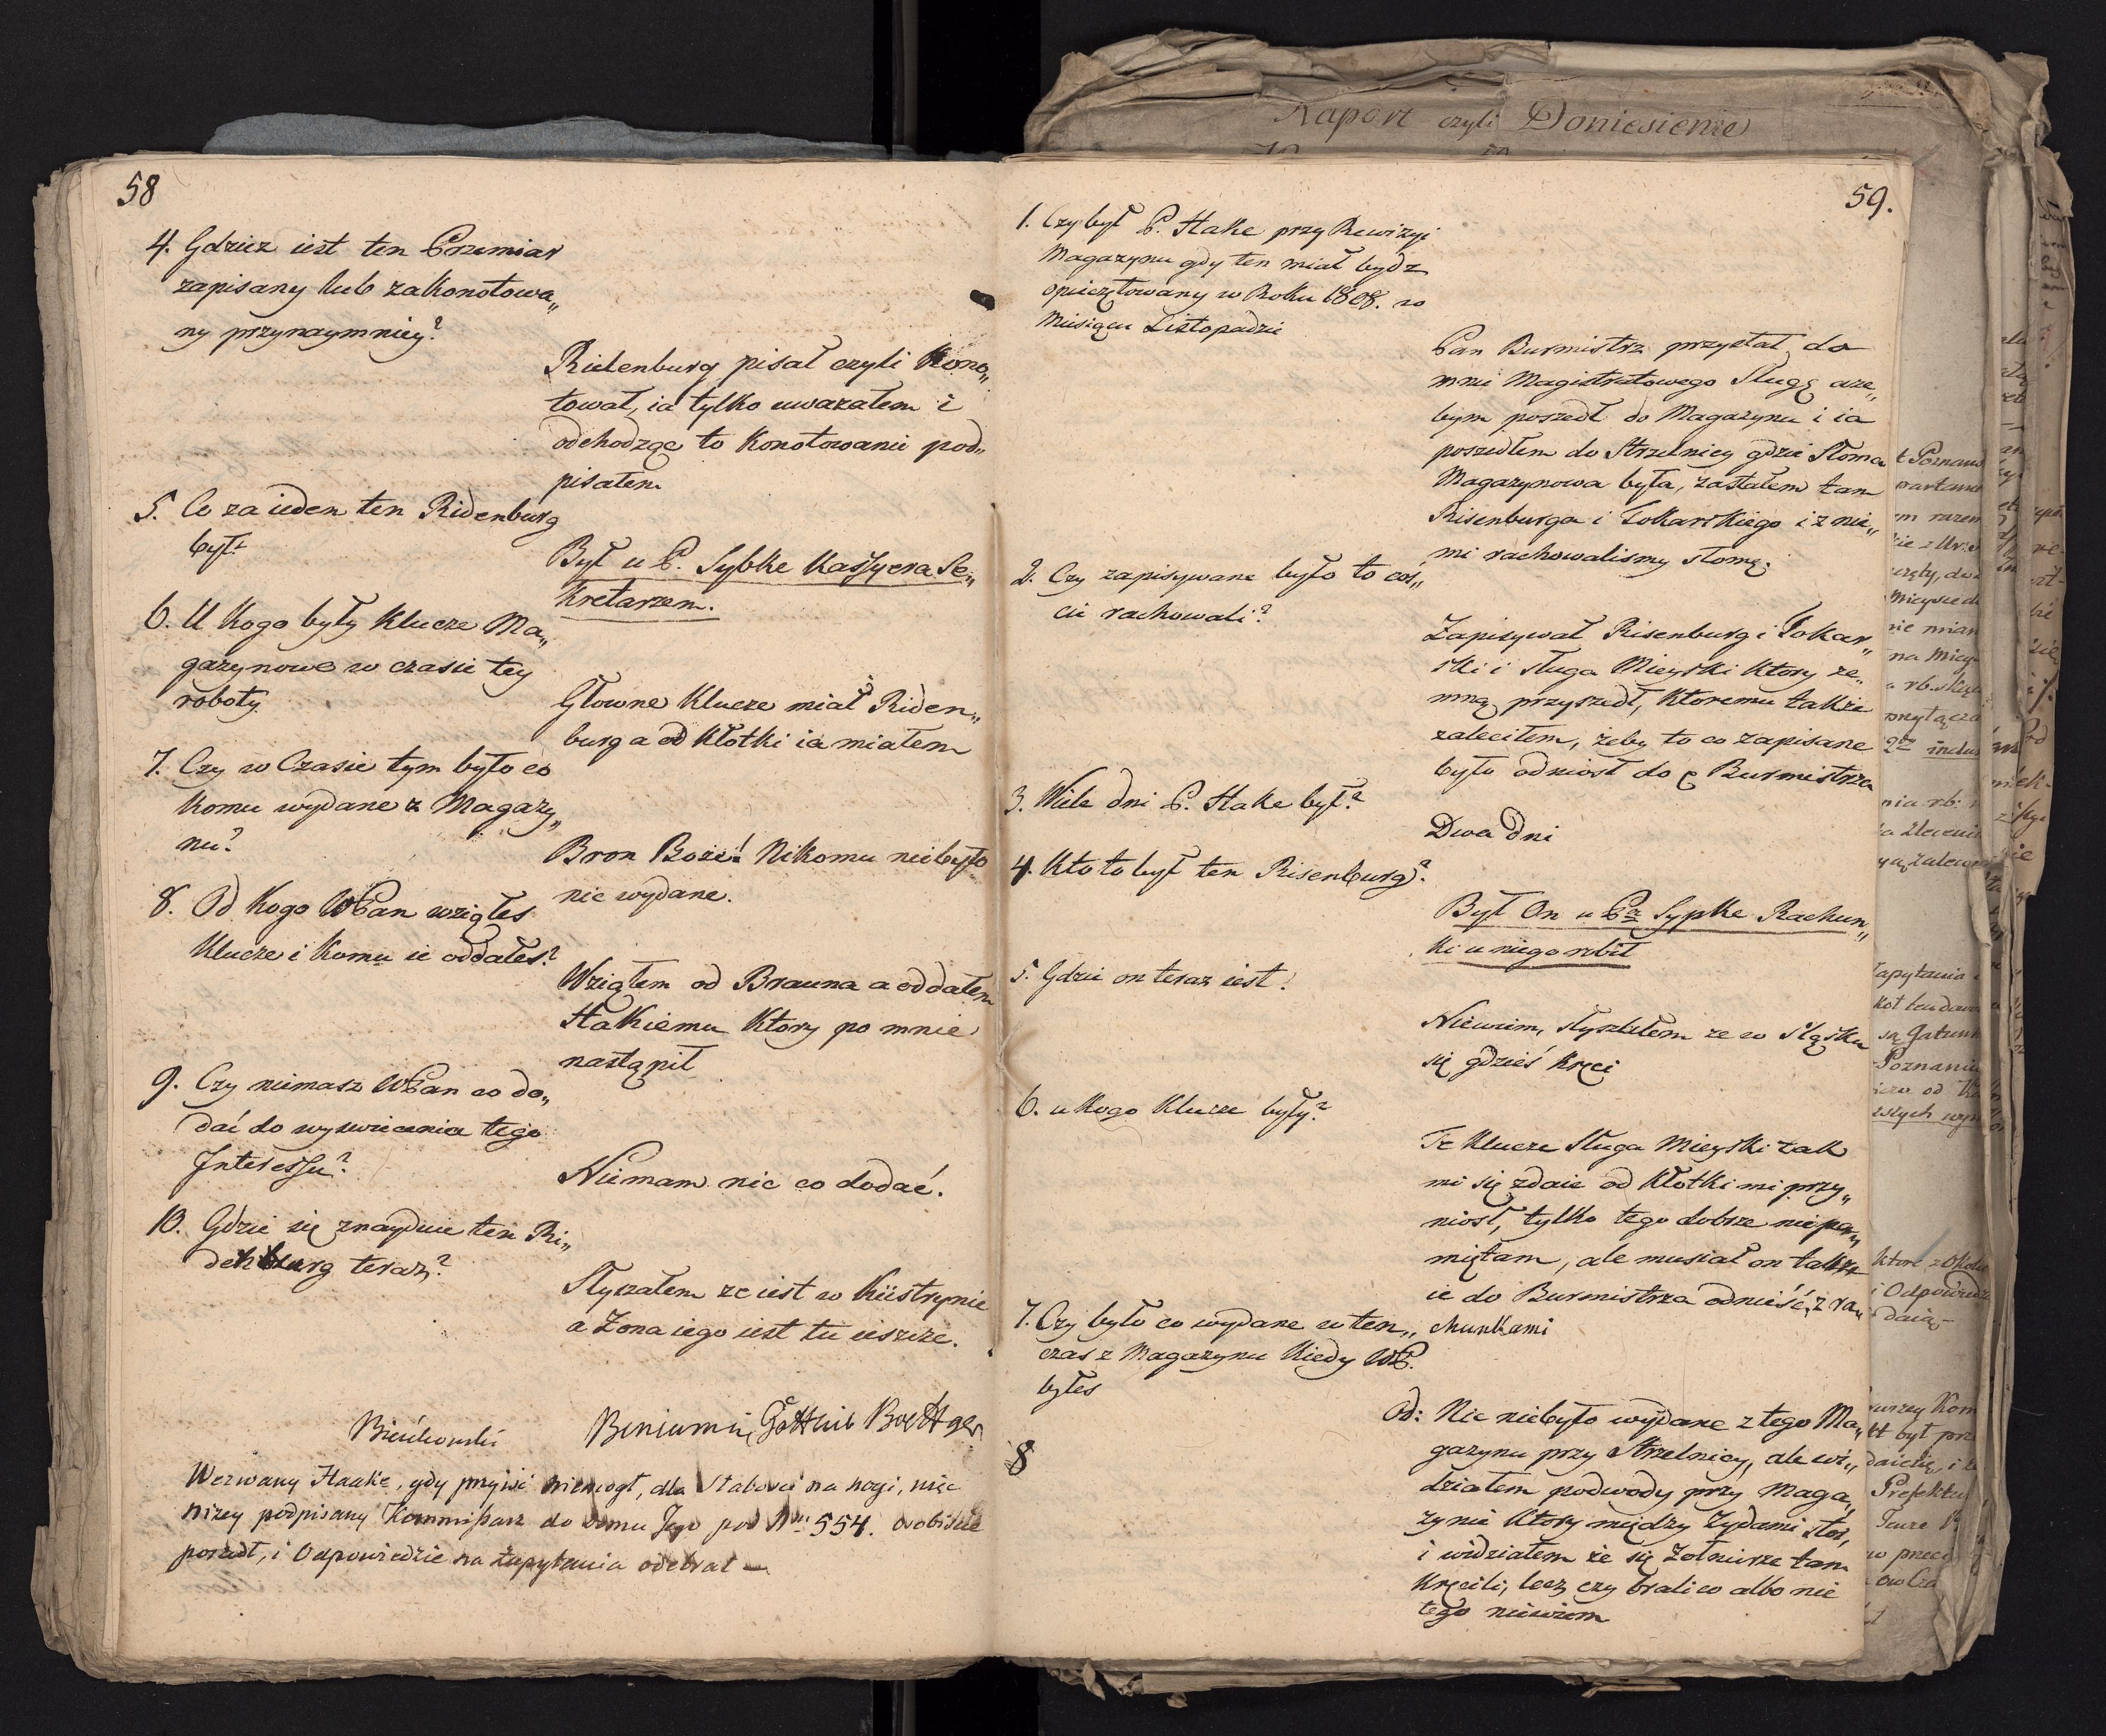 58
4. Gdzież iest ten Przemiar
zapisany lub zakonotowa„
ny przynaymniey?
Ridenburg pisał czyli Kono„
tował, ia tylko uwazałem i
odchodząc to Konotowanie pod„
pisałem
5. Co za ieden ten Ridenburg
był?
Był u P. Sybke Kassyera Se„
kretarzem.
6. U Kogo były Klucze Ma„
gazynowe w czasie tey
roboty
Głowne Klucze miał Riden„
burg a od Kłotki ia miałem
7. Czy w Czasie tym było co
komu wydane z Magazy„
nu?
Bron Boże! Nikomu niebyło
nic wydane.
8. Od Kogo WPan wziąłes
Klucze i Komu ie oddałes?
Wziąłem od Brauna a oddałem
Hakiemu Ktory po mnie
nastąpił
9. Czy niemasz WPan co do„
dać do wyswiecenia tego
Interessu?
Niemam nic co dodać.
10. Gdzie się znayduie ten Ri„
denburg teraz?
Słyszałem ze iest w Küstrynie
a Zona iego iest tu ieszcze.
Bieńkowski
Beniamin Gottlieb Boettger
Wezwany Haake, gdy przyiść niemogł, dla słabości na nogi, więc
niżey podpisany Kommissarz do domu Jego pod Nm 554. osobiście
poszedł, i Odpowiedzie na Zapytania odebrał —
Raport czyli Doniesienie
59.
1. Czy był P. Hake przy Rewizyi
Magazynu gdy ten miał bydz
opieczętowany w Roku 1808. w
Miesiącu Listopadzie
Pan Burmistrz przysłał do
mnie Magistratowego Sługę aze„
bym poszedł do Magazynu i ia
poszedłem do Strzelnicy gdzie Słoma
Magazynowa była, zastałem tam
Risenburga i Tokarskiego i z nie„
mi rachowalismy słomę.
2. Czy zapisywane było to coś„
cie rachowali?
Zapisywał Risenburg i Tokar„
ski i sługa Mieyski Ktory ze„
mną przyszedł, Ktoremu także
zaleciłem, żeby to co zapisane
było odniosł do P Burmistrza
3. Wiele dni P. Hake był?
Dwa dni
4. Kto to był ten Risenburg?
Był On u Pa Sypke Rachun„
ki u niego robił
5. Gdzie on teraz iest?
Niewiem, słyszałem ze w Sląsku
się gdzieś kręci
6. u Kogo Klucze były?
Te Klucze Sługa Mieyski tak
mi się zdaie od Kłotki mi przy„
niosł, tylko tego dobrze niepa„
miętam, ale musiał on także
ie do Burmistrza odnieść, z ra„
chunkami
7. Czy było co wydane w ten„
czas z Magazynu Kiedy WP.
byłes
Od: Nic niebyło wydane z tego Ma„
gazynu przy Strzelnicy, ale wi„
działem podwody przy Maga„
zynie Ktory między Zydami stoi,
i widziałem że się Zołnierze tam
Kręcili, lecz czy brali co albo nie
tego niewiem
8